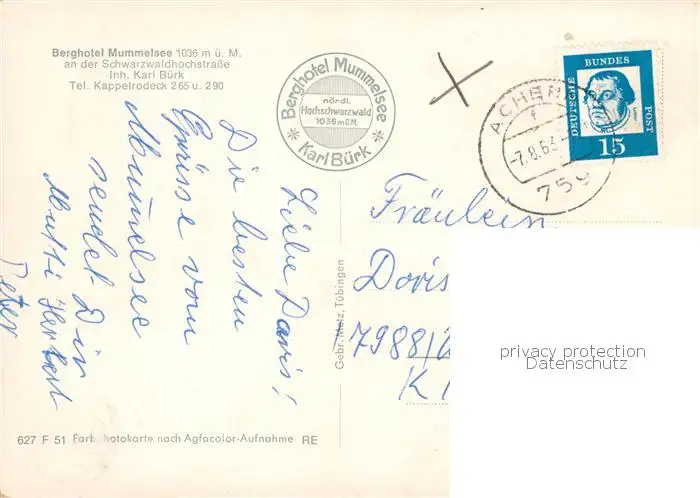 Berghotel Mummelsee 1036 m ü. M.
an der Schwarzwaldhochstraße
Inh. Karl Bürk
Tel. Kappelrodeck 265 u. 290
Berghotel Mummelsee
nördl.
Hochschwarzwald
1036 m ü.M.
* Karl Bürk *
DEUTSCHE BUNDES POST
15
ACHERN
f
-7.8.63
759
Liebe Doris!
Die besten
Grüsse vom
Mummelsee
sendet Dir
Mutti Herbert
Peter
Gebr. Metz, Tübingen
Fräulein
Doris
7988/2
K
privacy protection
Datenschutz
627 F 51 Farb. hotokarte nach Agfacolor-Aufnahme RE